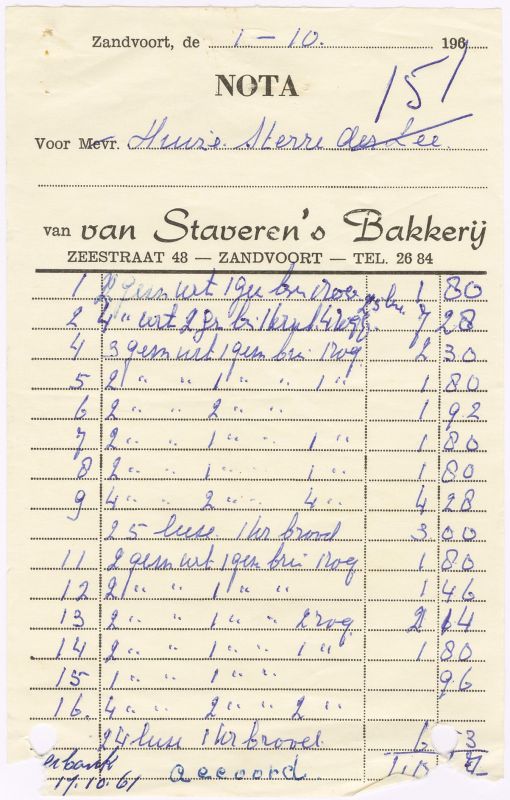 Zandvoort, de 1 - 10. 1961
NOTA
151
Voor Mevr. Huize Sterre der Zee.
van van Staveren's Bakkerij
ZEESTRAAT 48 — ZANDVOORT — TEL. 26 84
1 2 gesn wit 1 ges brui 1 rog 1 80
2 4 " wit 2 ges br 1 krnt 4 rog 7 28
4 3 gesn wit 1 gesn brui 1 rog. 2 30
5 2 " " 1 " " 1 " 1 80
6 2 " " 2 " " 1 92
7 2 " " 1 " " 1 " 1 80
8 2 " " 1 " " 1 " 1 80
9 4 " " 2 " " 4 " 4 28
25 luxe 1 kr brood 3 00
11 2 gesn wit 1 gesn brui 1 rog 1 80
12 2 " " 1 " " 1 46
13 2 " " 1 " " 2 rog. 2 14
14 2 " " 1 " " 1 " 1 80
15 1 " " 1 " " 96
16. 4 " " 2 " " 2 "
24 luxe 1 kr brood. 6 53
17.10.61 accoord.